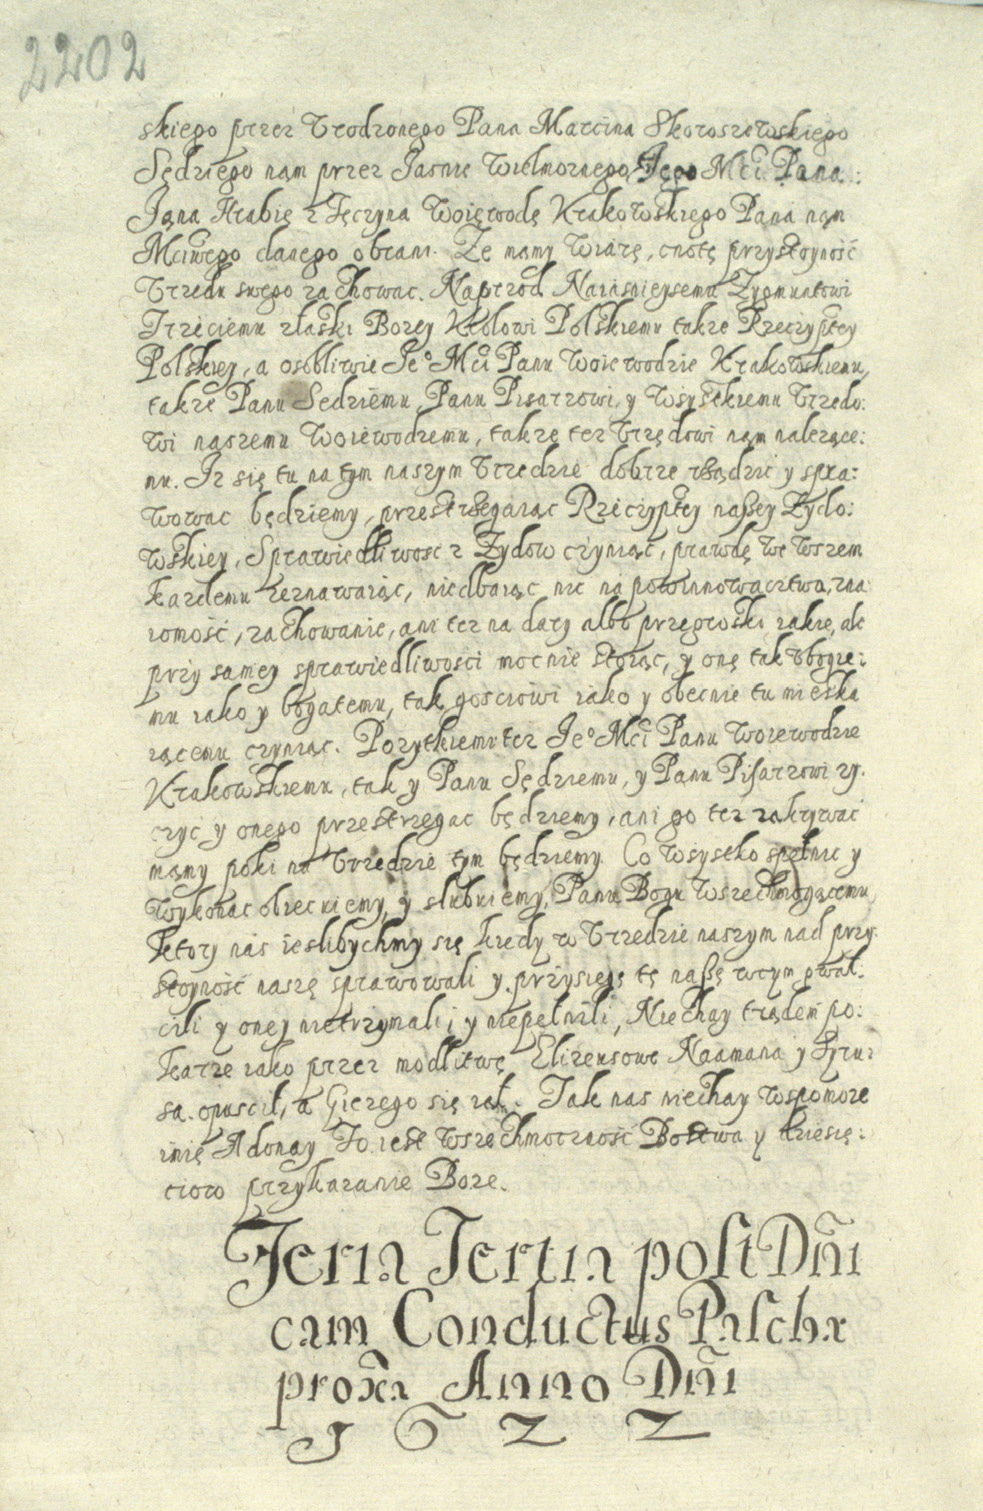 2202
skiego przez Urodzonego Pana Marcina Skoroszewskiego
Sędziego nam przez Jasnie Wielmoznego Jego Mci Pana:
Jana Hrabię z Tęczyna Woięwodę Krakowskiego Pana nam
Mciwego danego obrani. Ze mamy Wiarę, cnotę przystoyność
Urzedu swego zachowac. Naprzod Naiasnieysemu Zygmuntowi
Trzeciemu złaski Bozey Krolowi Polskiemu takze Rzeczyptey
Polskiey, a osobliwie Jeo Mci Panu Woiewodzie Krakowskiemu,
takze Panu Sedziemu Panu Pisarzowi, y Wsystkiemu Urzedo:
wi naszemu Woiewodzemu, takze tez Urzędowi nam nalezące:
mu. Iz się tu na tym naszym Urzedzie dobrze rządzic y spra:
wowac będziemy, przestrzegaiąc Rzeczyptey naßey Zydo:
wskiey, Sprawiedliwosc z Zydow czyniąc, prawdę we wszem
kazdemu zeznawaiąc, niedbaiąc nic na powinnowactwo, zna
iomość, zachowanie, ani tez na dary albo przegrozki iakie, ale
przy samey sprawiedliwosci mocnie stoiąc, y onę tak ubogie:
mu iako y bogatemu, tak gosciowi iako y obecnie tu mieska
iącemu czyniąc. Pozytkiemu tez Jeo Mci Panu Woiewodzie
Krakowskiemu, tak y Panu Sędziemu, y Panu Pisarzowi zy.
czyć y onego przestrzegac będziemy, ani go tez zakrywać
mamy poki na Urzedzie tym będziemy. Co wsystko spełnic y
wykonac obiecuiemy, y slubuiemy, Panu Bogu Wszechmogącemu,
Ktory nas ieslibychmy się kiedy w Urzedzie naszym nad przy
stoyność naszę sprawowali y przysięgę tę naßę wczym gwał.
cili y oney nietrzymali, y niepełnili, Niechay trądem po:
karze iako przez modlitwę Elizeusowę Naamana y Syrus
sa. opuscił, a Giezego się iął. Tak nas niechay wspomoze
imię Adonay To iest Wszechmocność Bostwa y dziesię:
cioro przykazanie Boze.
Feria Tertia post Dñi
cam Conductus Pascha
proxa Anno Dñi
1622